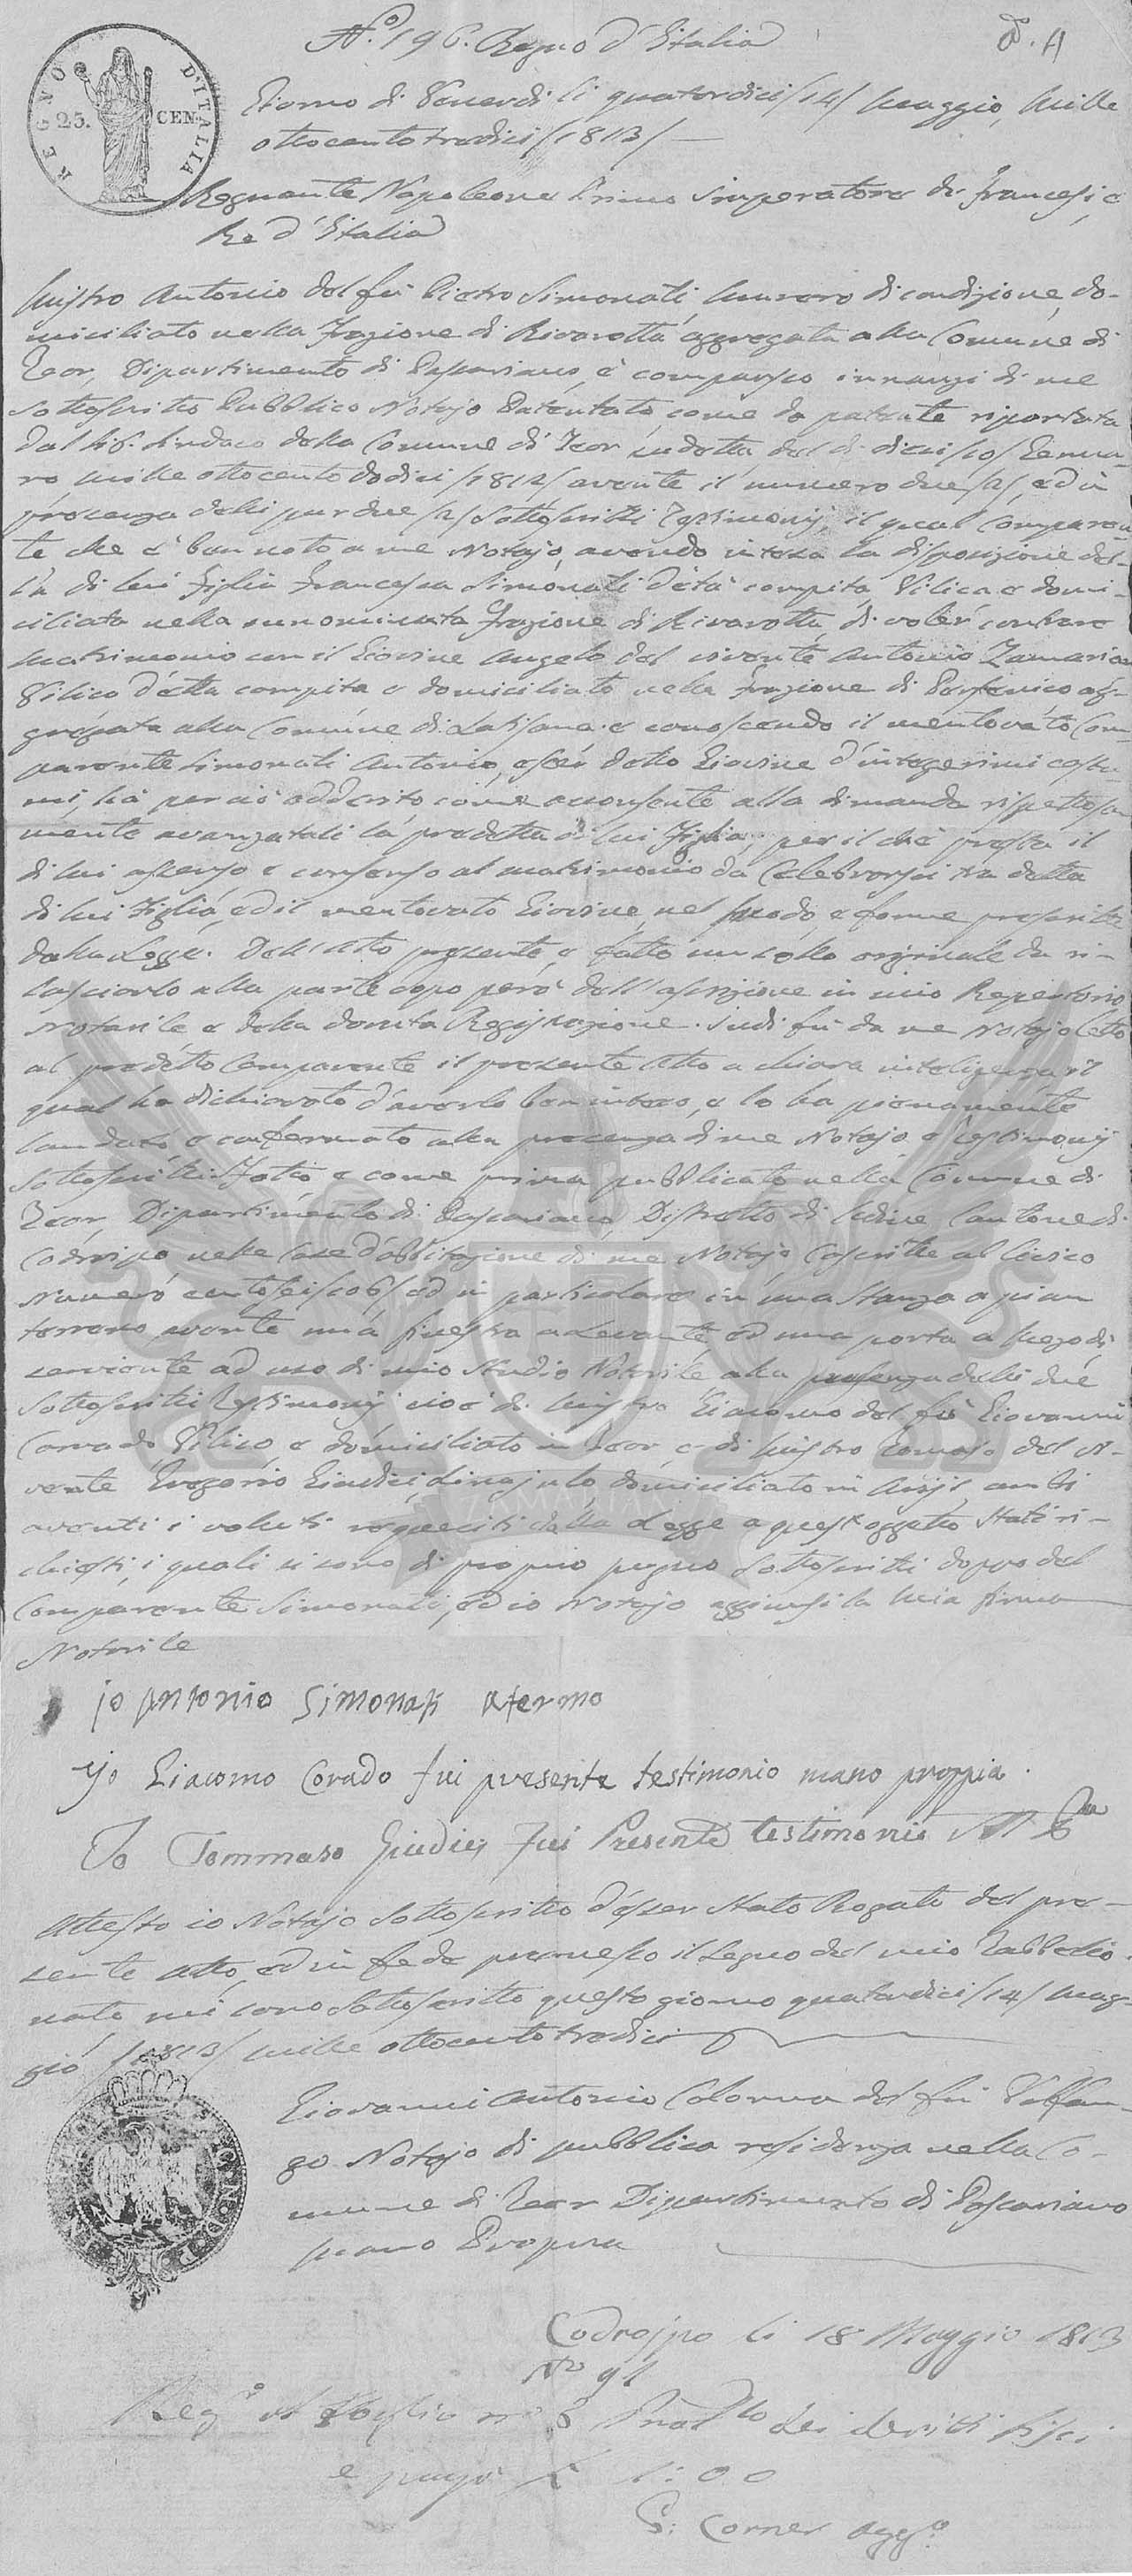 N.º 196. Regno d'Italia
D. A
REGNO D'ITALIA
25. CEN.
Giorno di Venerdi li quatordici /14/ Maggio, Mille
ottocento tredici /1813/
Regnante Napoleone Primo Imperatore de Francesi, e
Re d'Italia
Mistro Antonio del fu Pietro Simonati Murero di condizione, do-
miciliato nella Frazione di Rivarotta aggregata alla Comune di
Teor, Dipartimento di Passariano, è comparso innanzi di me
Sottoscritto Pubblico Notajo Patentato, come da patente riportata
dal Sig. Sindaco della Comune di Teor in detta del dì dieci /10/ Genna-
ro mille ottocento dodici /1812/ avente il numero due /2/, ed in
presenza delli pur due /2/ Sottoscritti Testimonij, il qual Comparen-
te che è ben noto a me Notajo, avendo intesa la disposizione del-
la di lui Figlia Francesca Simonati d'età compita, Vilica e domi-
ciliata nella sunnominata Frazione di Rivarotta, di voler contraere
Matrimonio con il Giovine Angelo del vivente Antonio Zamarian
Vilico d'età compita e domiciliato nella Frazione di Pertenico ag-
gregata alla Comune di Latisana. e conoscendo il mentovato Com-
parente Simonati Antonio, esser detto Giovine d'integerrimi costu-
mi, ha perciò adderito come acconsente alla dimanda rispettosa-
mente avanzatali la predetta di lui Figlia, per il chè presta il
di lui assenso e consenso al matrimonio da Celebrarsi tra detta
di lui Figlia, ed il mentovato Giovine, nel modo, e forme prescritte
dalla Legge. Dell'Atto presente, è fatto un solo originale da ri-
lasciarlo alla parte dopo però dell'ascrizione in mio Repertorio
Notarile e della dovuta Registrazione. Indi fù da me Notajo letto
al predetto Comparente il presente Atto a chiara inteligenza il
qual ha dichiarato d'averlo ben inteso, e lo ha pienamente
laudato e confermato alla presenza di me Notajo, e Testimonij
Sottoscritti. Fatto e come prima pubblicato nella Comune di
Teor, Dipartimento di Passariano, Distretto di Udine Cantone di
Codroipo nelle Case d'abbitazione di me Notajo Coscritte al Civico
Numero cento sei /106/ ed in particolare in una Stanza a pian
terreno avente una finestra a Levante, ed una porta a Mezo di
serviente ad uso di mio Studio Notarile alla presenza delli due
Sottoscritti Testimonij cioè di Mistro Giacomo del fù Giovanni
Corrado Vilico e domiciliato in Teor, e di Mistro Tomaso del vi-
vente Gregorio Giudici, domiciliato in ambi
aventi i voluti requisiti dalla Legge a quest'oggetto Stati ri-
chiesti, i quali si sono di proprio pugno Sottoscritti doppo del
Comparente Simonati, ed io Notajo aggiunsi la Mia firma
Notarile
io Antonio Simonati afermo
Yo Giacomo Corado fui presente testimonio mano proppia.
Io Tommaso Giudici fui Presente testimonio M P
Attesto io Notajo Sottoscritto d'esser Stato Rogato del pre-
sente Atto, ed in fede premesso il Segno del mio Tabbelio-
nato mi sono Sottoscritto questo giorno quatordici /14/ Mag-
gio /1813/ mille ottocento tredici
Giovanni Antonio Colonna del fu Volfan-
go Notajo di pubblica residenza nella Co-
mune di Teor Dipartimento di Passariano
mano Propria
Codroipo li 18 Maggio 1813
Nº 91
Regº al foglio nº 8 dei deritti fissi
e pagò L 1:00
G: Corner Aggº